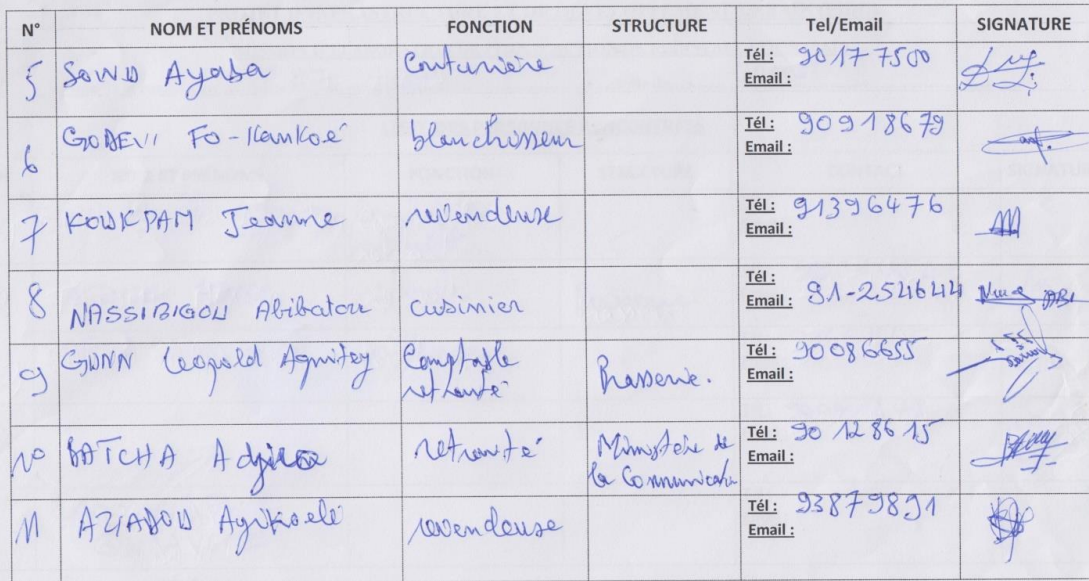 N° NOM ET PRÉNOMS FONCTION STRUCTURE Tel/Email SIGNATURE
5 SOWU Ayaba Couturière Tél : 90177500
Email :
6 GODEVI Fo-Kankoé blanchisseur Tél : 90918679
Email :
7 KOUKPAM Jeanne revendeuse Tél : 91396476
Email :
8 NASSIBIGOU Abibatou cuisinier Tél :
Email : 91-254644
9 GUNN Leopold Comptable Tél : 90086655
retraité Brasserie. Email :
10 BATCHA retraité Ministère de Tél : 90128615
la Communicatio Email :
11 AZIADOU Ayikoele revendeuse Tél : 93879891
Email :